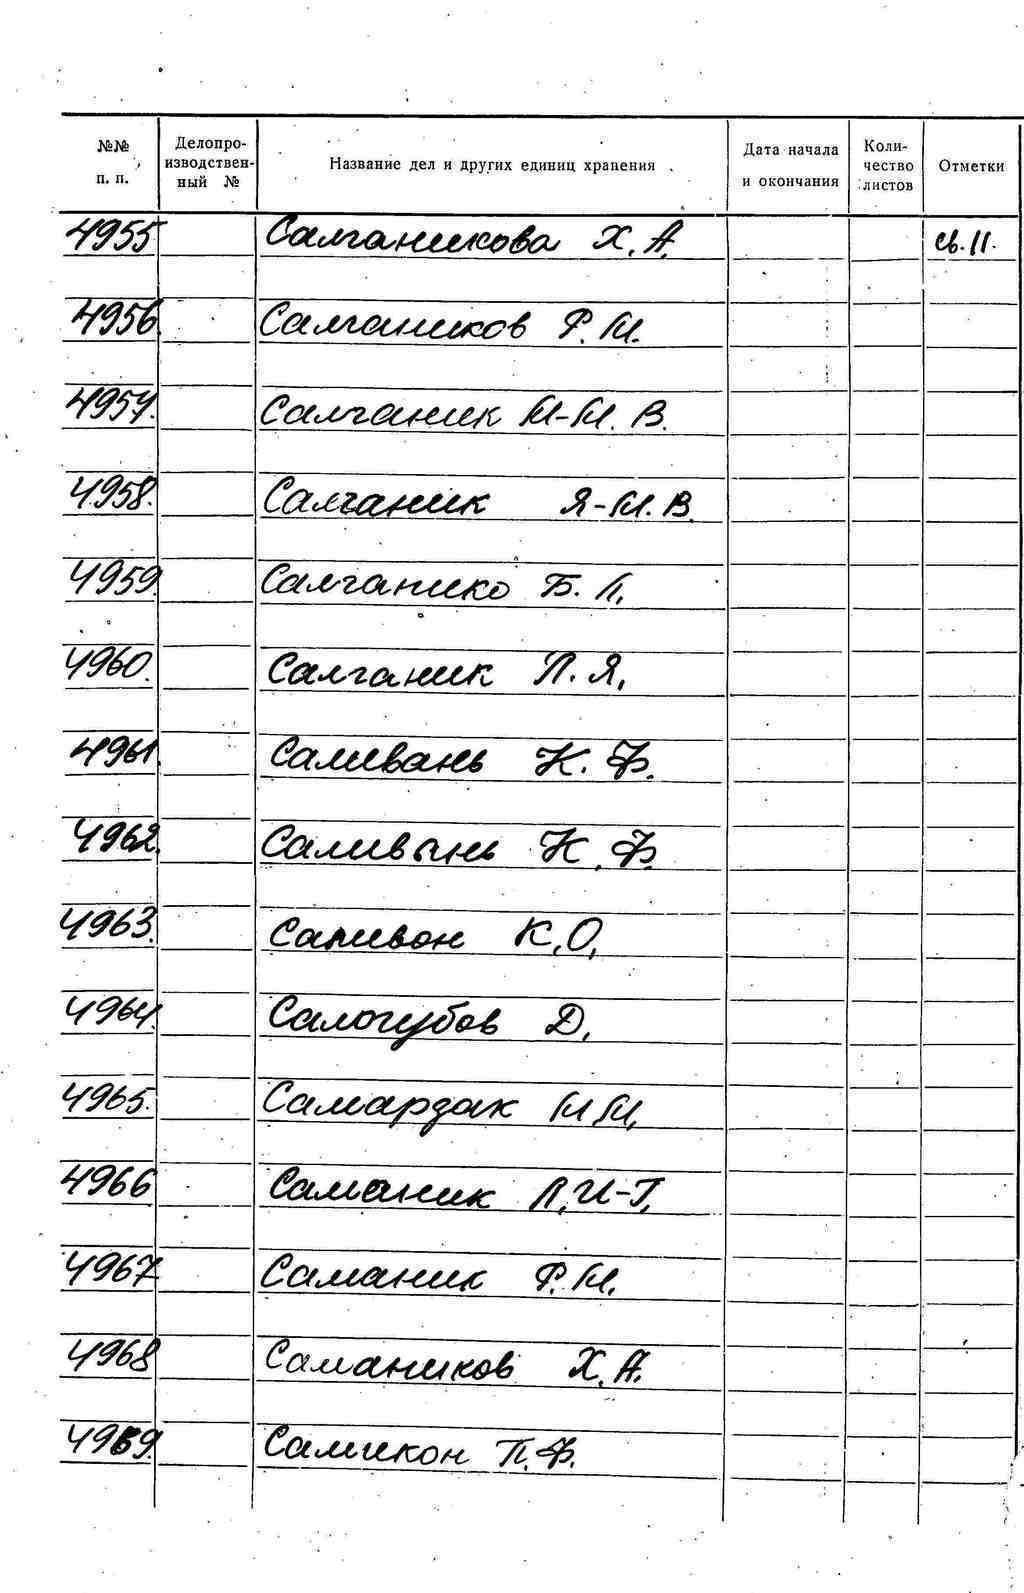 №№ п. п. Делопроизводственный № Название дел и других единиц хранения Дата начала и окончания Количество листов Отметки
4955 Салганикова Х. А. св. 11.
4956 Салгаников Р. М.
4957. Салганик М-М. В.
4958. Салганик Я-М. В.
4959. Салганико Б. Л.
4960. Салганик Л. Я.
4961. Саливань К. Ф.
4962. Саливынь К. Ф.
4963. Саливон К. О.
4964. Салогубов Д.
4965. Самардак М. М.
4966 Саманик Л. И-Г.
4967 Саманик Р. М.
4968 Самаников Х. А.
4969. Самикон П. Ф.